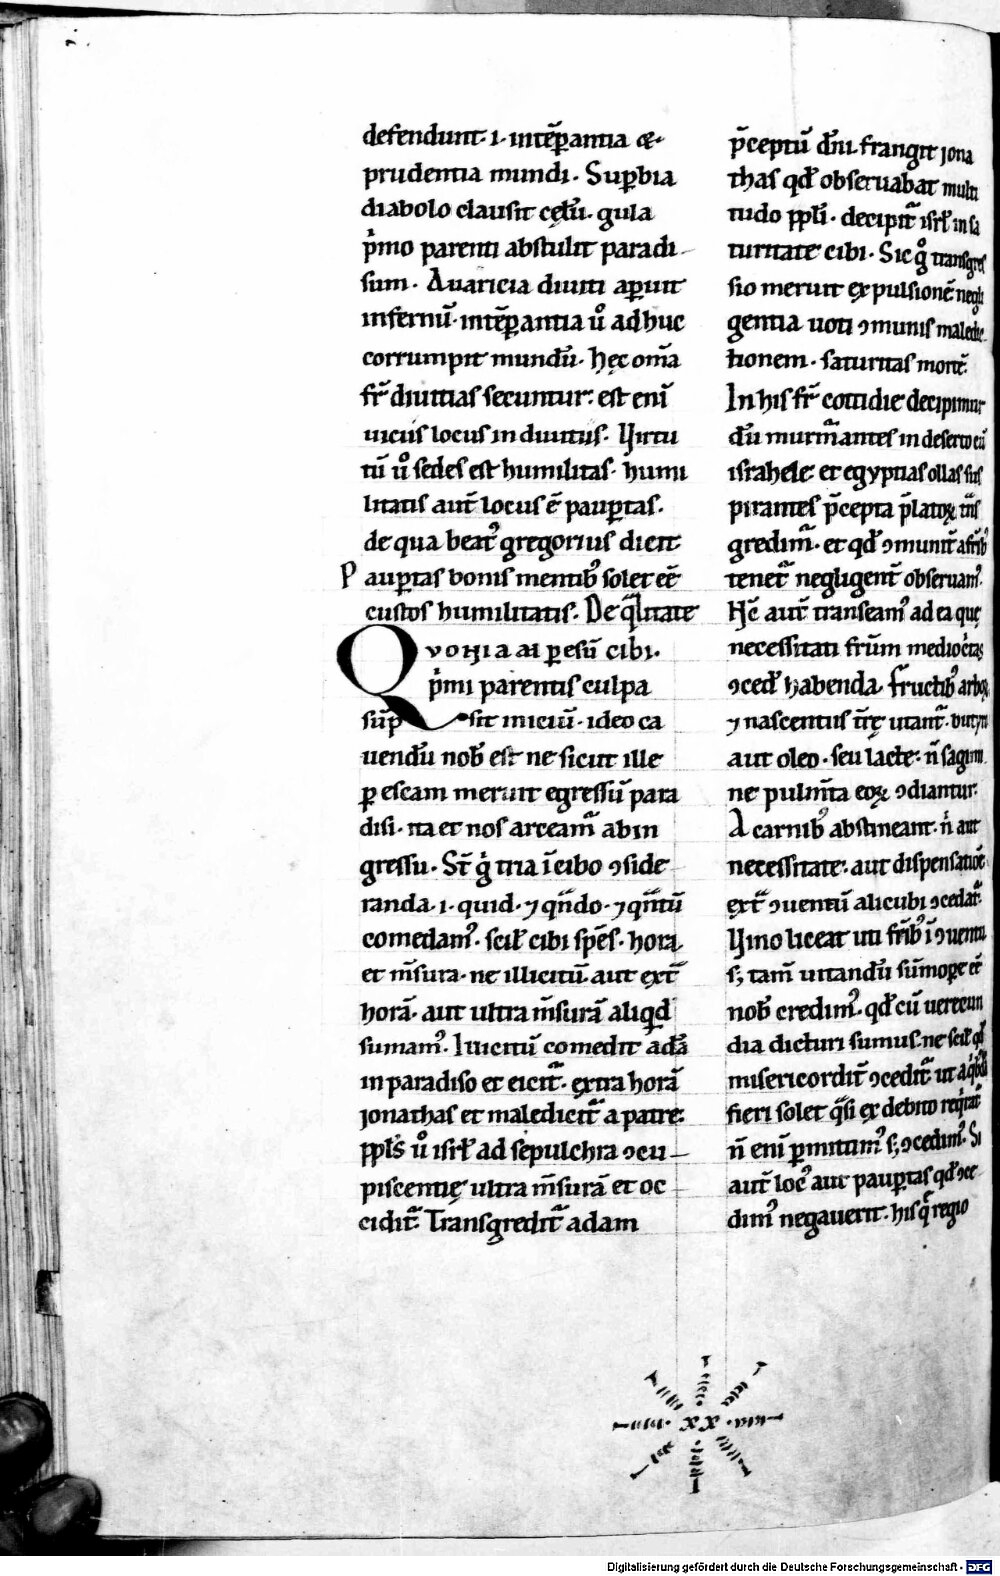 defendunt· ı· intẽꝑantia &·
prudentia mundi· Suꝑbia
diabolo clausit cęlũ· gula
p̉mo parenti abstulit paradi
sum· Auaricia diuiti aꝑuit
infernũ· intẽꝑantia u̾o adhuc
corrumpit mundũ· hęc om̃a
fr̃ diuitias secuntur· est eni̅
uicus locus in diuitiis· Virtu
tũ u̾o sedes est humilitas· humi
litatis aut̃ locus ẽ pauꝑtas·
de qua beatꝰ gregorius dicit
Pauꝑtas bonis mentibꝰ solet eẽ
custos humilitatis· De qͣlitate
Qvoniam ꝑ esũ cibi·
p̉mi parentis culpa
sũpsit iniciũ· ideo ca
uendũ nob̃ est ne sicut ille
ꝑ escam meruit egressũ para
disi· ita et nos arceamꝰ ab in
gressu· St̃ g̉ tria i̅ cibo ꝯside
randa· ı· quid· ⁊ qn̄do· ⁊ qn̄tũ
comedamꝰ· scil̃ cibi spẽs· hora
et m̃sura· ne illicitũ aut ext̃
horã· aut ultra m̃surã aliqͥd
sumamꝰ· Illicitũ comedit adã
in paradiso et eicit᷑· extra horã
jonathas et maledicit᷑ a patre·
ppl̃s u̾o isrl̃ ad sepulchra ꝯcu
piscentię ultra m̃surã et oc
cidit᷑· Transgredit᷑ adam
p̃ceptũ dñi· frangit jona
thas qđ obseruabat multi
tudo ppl̃i· decipit᷑ isrl̃ in sa
turitate cibi· Sic g̊ transgres
sio meruit expulsionẽ negli
gentia uoti ꝯmunis maledic
tionem· saturitas mortẽ·
In his fr̃ cottidie decipimur
dũ murm̃antes in deserto cũ
israhele· et egyptias ollas sus
pirantes p̃cepta p̃latoꝝ trñs
gredim᷑· et qđ ꝯmunit᷑ a fr̃ibꝰ
tenet᷑ negligent᷑ obseruamꝰ·
Hẽc aut̃ transeamꝰ ad ea quę
necessitati fr̃um mediocritas
ꝯced᷑ habenda· fructibꝰ arboꝝ
⁊ nascentiis t̃rę utant᷑· butyro
aut oleo· seu lacte· ñ sagimi
ne pulm̃ta eoꝝ ꝯdiantur·
A carnibꝰ abstineant· n̉ aut
necessitate· aut dispensatiõe
ext̃ ꝯuentũ alicubi ꝯcedat᷑·
Vino liceat uti fr̃ibꝰ i̅ ꝯuentu
s; tam̃ uitandũ sũmoꝑe eẽ
nob̃ credimꝰ· qđ cũ uerecun
dia dicturi sumus· ne scil̃ qđ
misericordit᷑ ꝯcedit᷑ ut a qͥbꝰdã
fieri solet qͣsi ex debito reqͥrat᷑
ñ eni̅ ꝑmittimꝰ s; ꝯcedimꝰ· Si
aut̃ locꝰ aut pauꝑtas qđ ꝯce
dimꝰ negauerit· his qͬ regio
XX
Digitalisierung gefördert durch die Deutsche Forschungsgemeinschaft - DFG